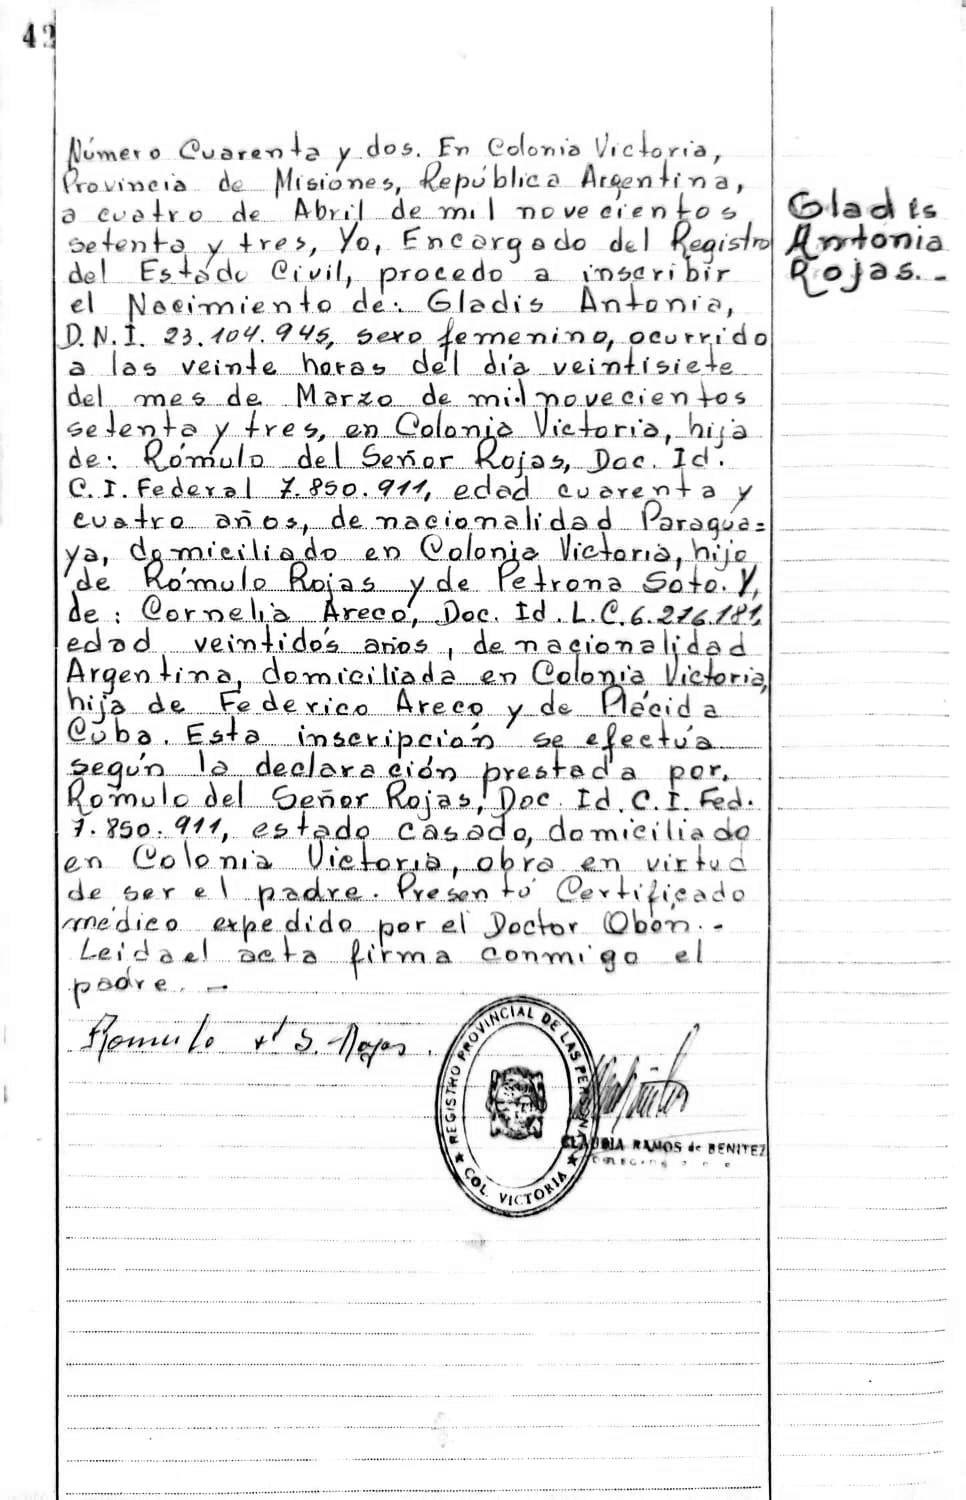 42
Número Cuarenta y dos. En Colonia Victoria,
Provincia de Misiones, República Argentina,
a cuatro de Abril de mil novecientos
setenta y tres, Yo, Encargado del Registro
del Estado Civil, procedo a inscribir
el Nacimiento de: Gladis Antonia,
D.N.I. 23.104.945, sexo femenino, ocurrido
a las veinte horas del día veintisiete
del mes de Marzo de mil novecientos
setenta y tres, en Colonia Victoria, hija
de: Rómulo del Señor Rojas, Doc. Id.
C.I. Federal 7.850.911, edad cuarenta y
cuatro años, de nacionalidad Paragua=
ya, domiciliado en Colonia Victoria, hijo
de Rómulo Rojas y de Petrona Soto. Y,
de: Cornelia Areco, Doc. Id. L.C. 6.216.181,
edad veintidós años, de nacionalidad
Argentina, domiciliada en Colonia Victoria,
hija de Federico Areco y de Plácida
Cuba. Esta inscripción se efectúa
según la declaración prestada por.
Rómulo del Señor Rojas, Doc. Id. C.I. Fed.
7.850.911, estado casado, domiciliado
en Colonia Victoria, obra en virtud
de ser el padre. Presentó Certificado
médico expedido por el Doctor Obón.-
Leida el acta firma conmigo el
padre. -
Gladis
Antonia
Rojas.-
Romulo d S. Rojas.
REGISTRO PROVINCIAL DE LAS PERSONAS
COL. VICTORIA
CLAUDIA RAMOS de BENITEZ